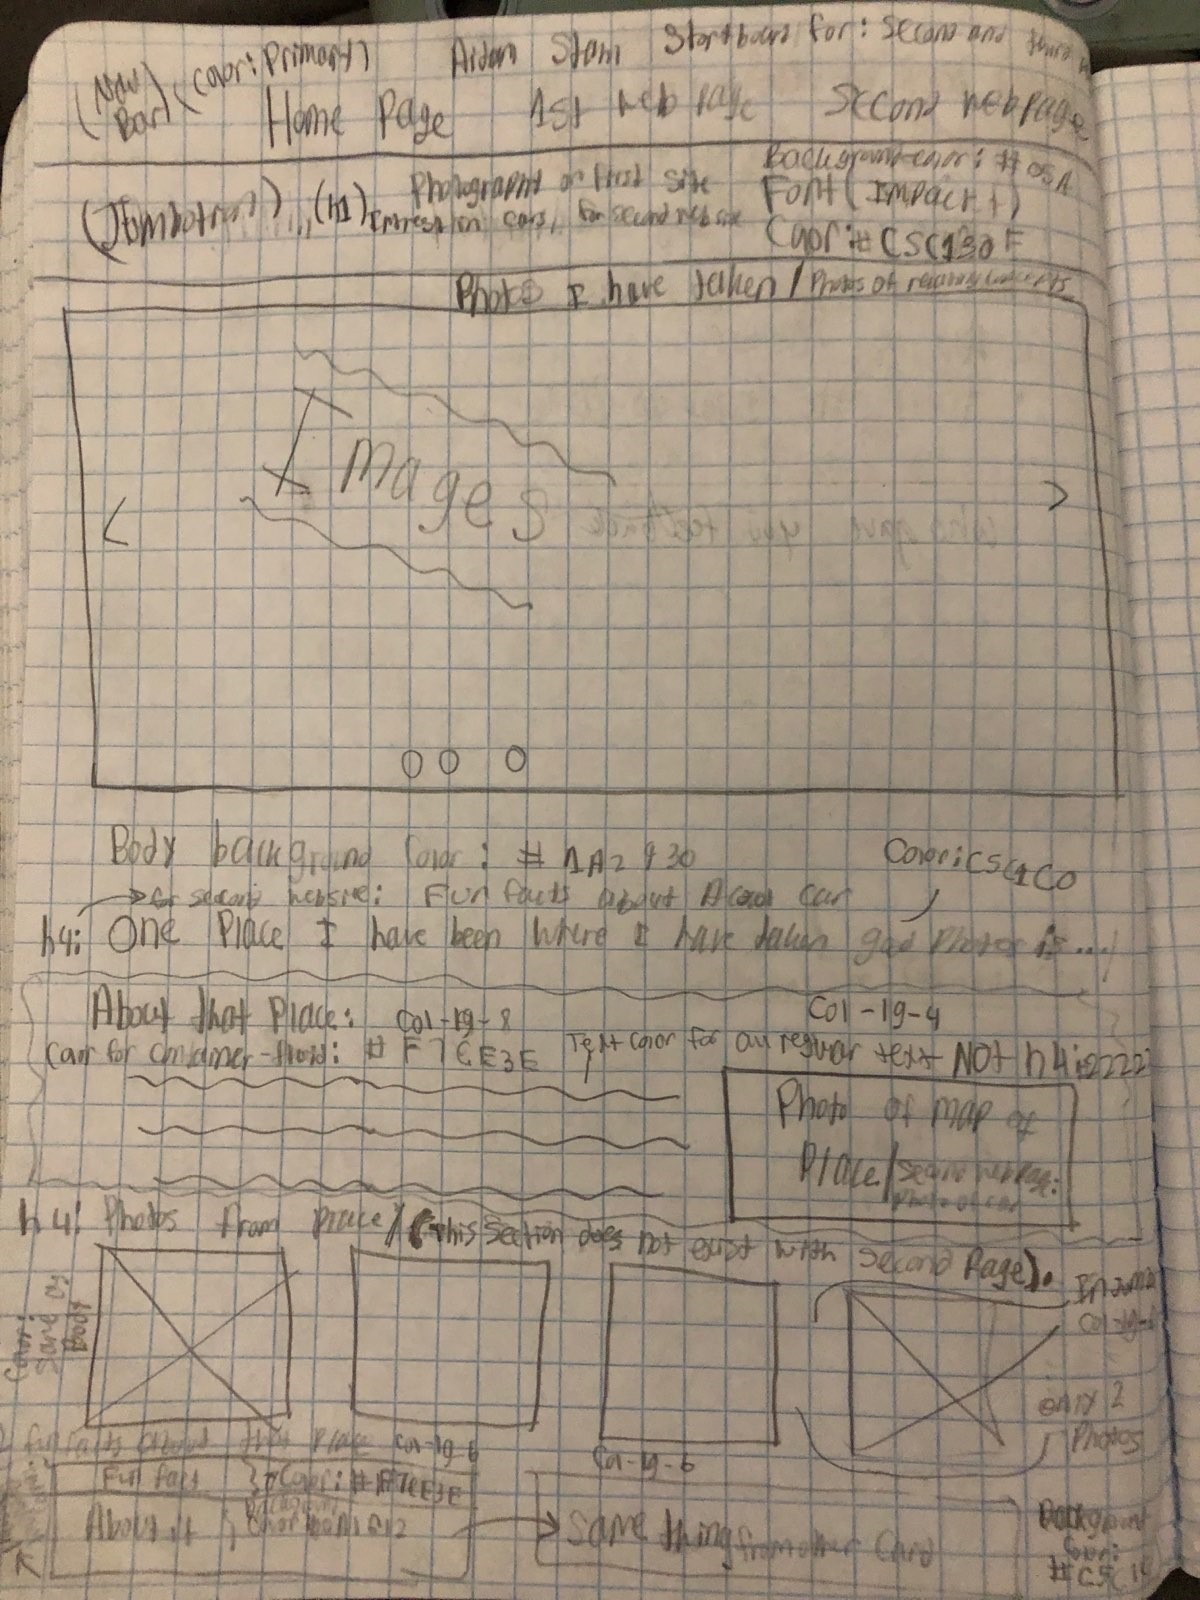 (Nav Bar) (Color: Primary) Aidan Stam Startboard for: Second and third
Home Page 1st web page Second webpage
(Jumbotron) (h1) Photography on first site
Interest in cars, for second web site
Background-color: #05A
Font (Impact)
Color: #C5C130F
Photos I have taken / Photos of
Images
< >
Body background color: #1A2930
Color: C5C1C0
for second website: Fun facts about car
h4: One Place I have been where I have taken good photos is....
About that place: Col-lg-8
Col-lg-4
Color for container-fluid: #F7CE3E Text color for all regular text NOT h4: 2222
Photo of map of
Place/Second webpage:
Photo of car
h4: Photos from place/(this section does not exist with second Page).
Color: Same as Body
only 2
Photos
fun facts about that place Col-lg-6
Col-lg-6
Fun fact Color: #F7CE3E
About it
Same thing from other Card
Background
Color:
#C5C1